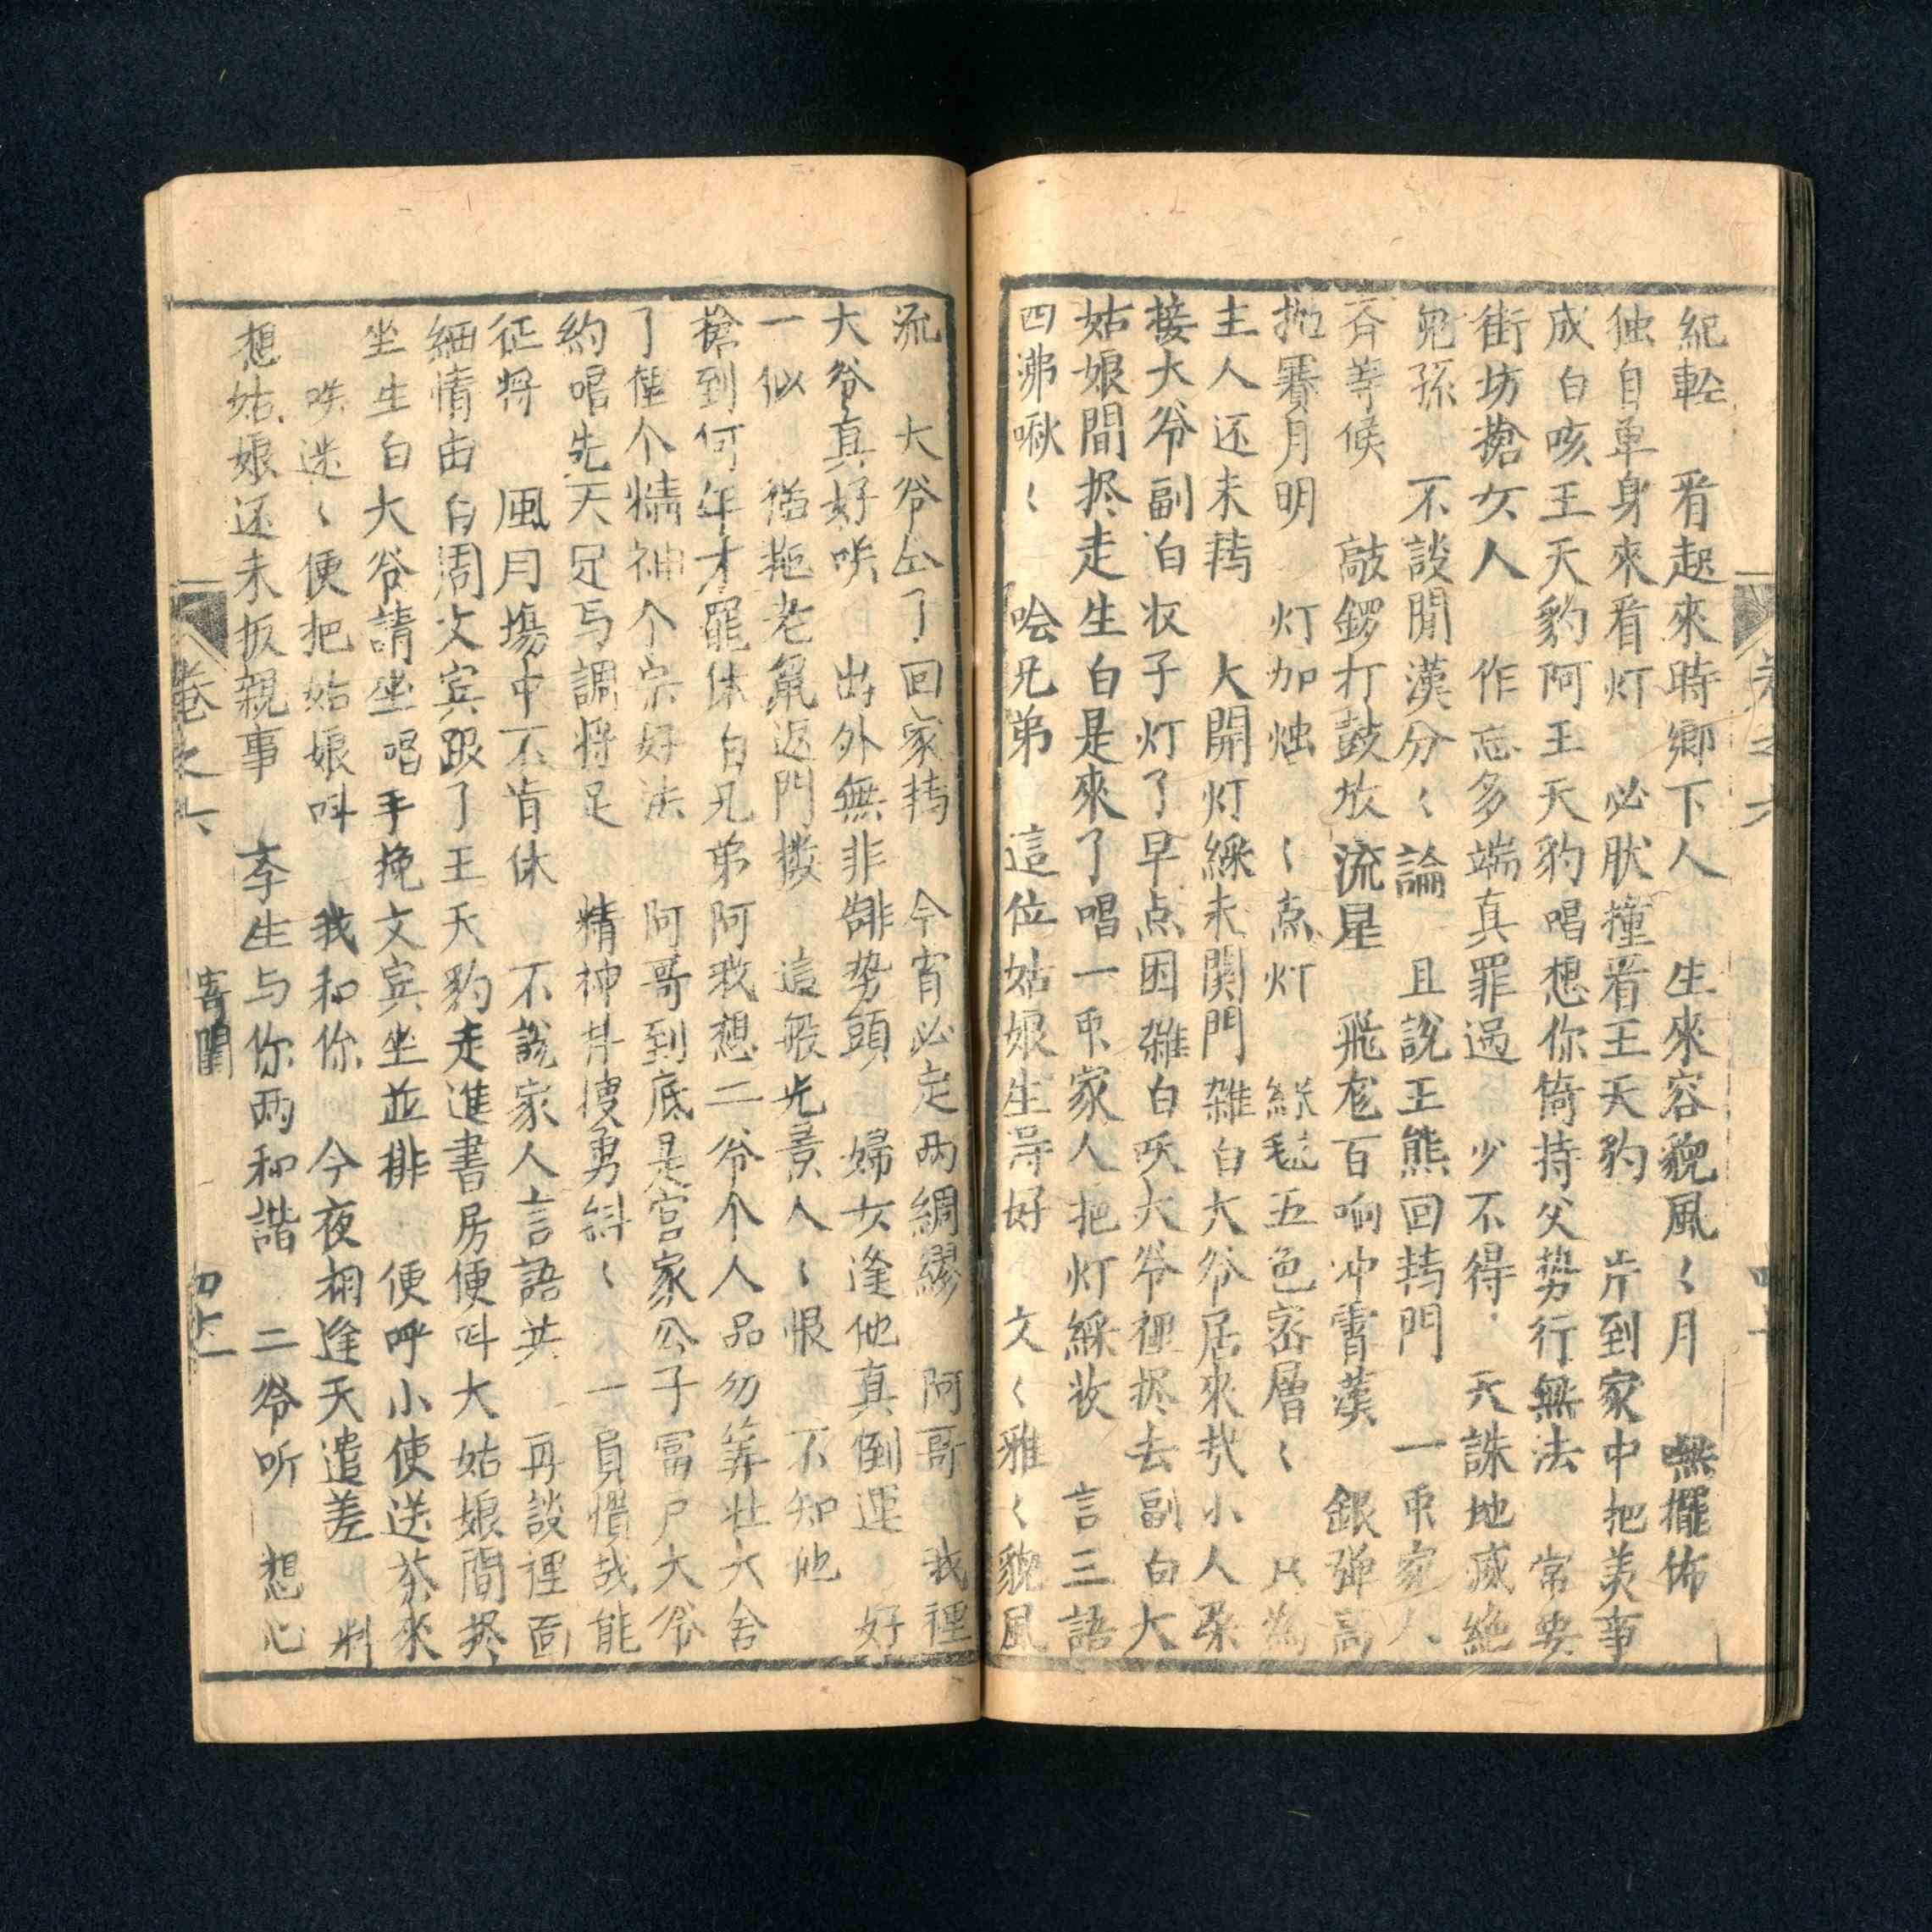 紀輕　看起來時鄉下人　生來容貌風〻月　無擺佈
独自单身來看灯　必肰撞着王天豹　片到家中把美事
成白咳王天豹阿王天豹唱想你倚持父势行無法　常要
街坊搶女人　作惡多端真罪過　少不得　天誅地威絶
兒孫　不談閒漢分〻論　且說王熊回轉門　一帀家人
齐等候　敲鑼打鼓放流星　飛炮百响冲霄漢　銀弹高
拋賽月明　灯加烛　〻点灯　毯五色密層〻　只為
主人还未转　大開灯綵未関門雜白大爷居來哉小人
接大爷副白牧子灯了早点困雜白大爷裡去副白大
姑娘間走生白是來了唱一帀家人把灯綵妆　言三語
四沸啾〻　哙兄弟　這位姑娘生得好　文〻雅〻貌風
流　大爷公了回家转　今宵必定两綢繆　阿哥　我裡
大爷真好　出外無非势頭　婦女逢他真倒運　好
一似　猫拖老鼠返門　這般光景人〻恨　不知他
搶到何年才罷休白兄弟阿我想二爷个人品勿算壮大舍
了但个精神个宗好法　阿哥到底是宫家公子富户大爷
約唱先天足与調將足　精神瘦男〻　一員慣哉能
征將　風月塲中不肯休　不說家人言語共　再談裡面
細情由白周文宾跟了王天豹走進書房便叫大姑娘間
坐生白大爷請坐唱手挽文宾坐並排　便呼小使送茶來
〻便把姑娘叫　我和你　今夜相逢天遣差　料
想姑娘还未扳親事　李生与你两和諧　二爷听　想心
卷之六